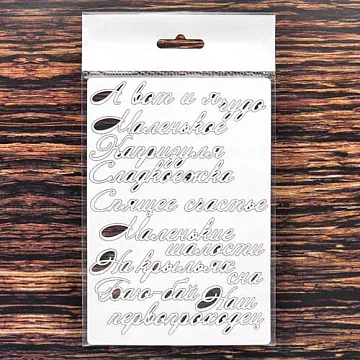 А вот и я чудо
Маленькое
Капризуля
Сладкоежка
Спящее счастье
Маленькие
шалости
На крыльях
сна
Баю-бай Наш
первопроходец